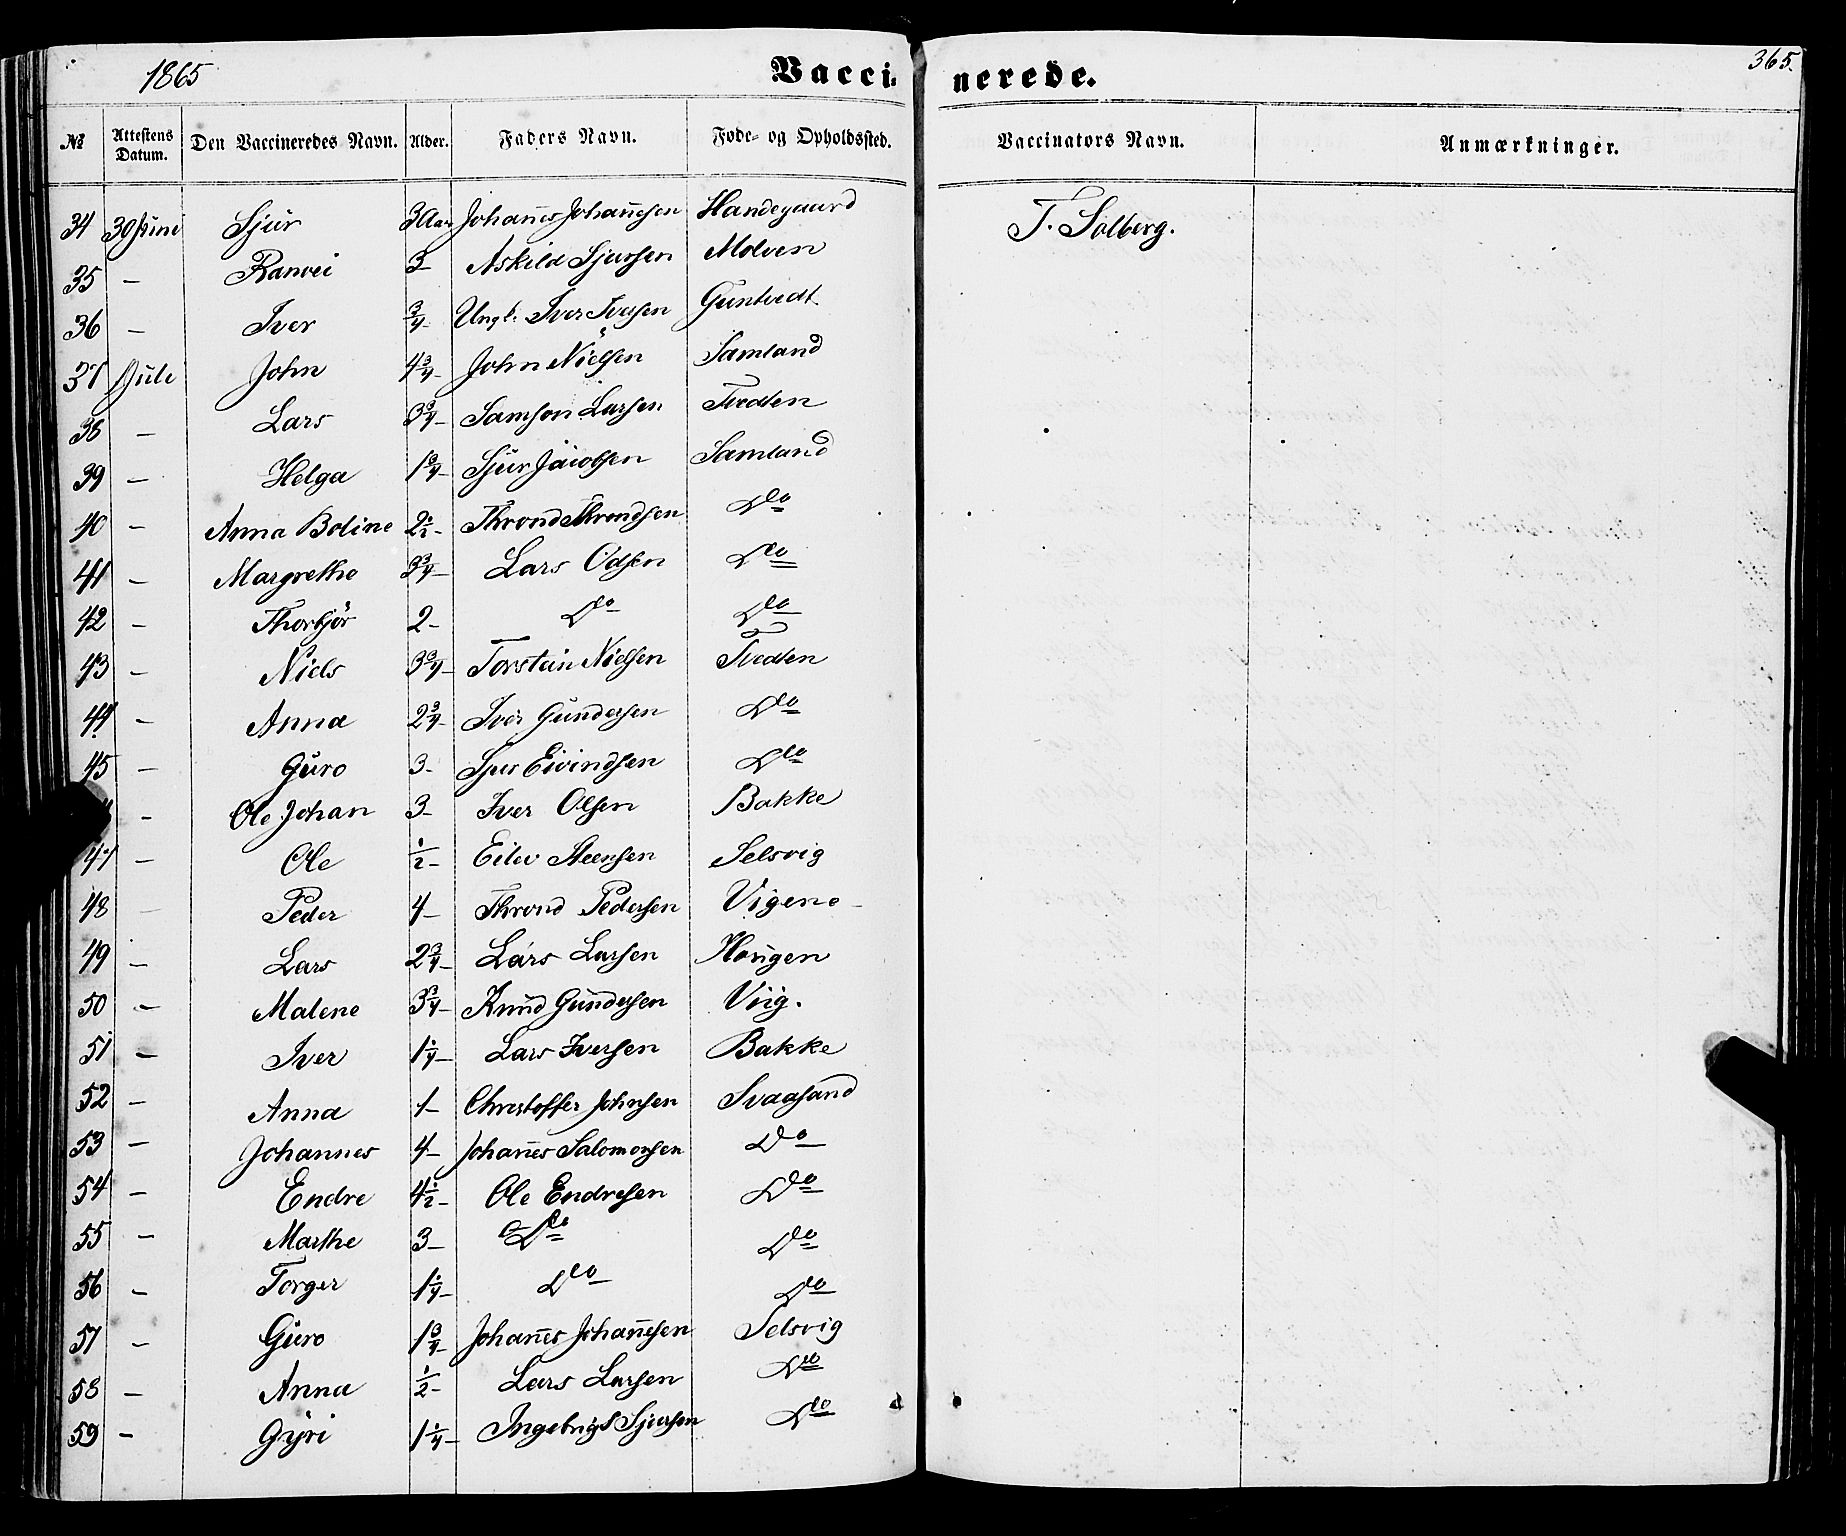 1865 Vaccinerede. 365.
№ Attestens Datum. Den Vaccineredes Navn. Alder. Faders Navn. Føde- og Opholdssted. Vaccinators Navn. Anmærkninger.
34 30 Juni Sjur 3 Aar Johan̅es Johan̅esen Handegaard T. Solberg.
35 — Ranvei 3 — Askild Sjursen Molven
36 — Iver 3/4 — Ungk. Iver Iversen Guntvedt
37 Juli John 4 3/4 — John Nielsen Samland
38 — Lars 3 3/4 — Samson Larsen Tvedten
39 — Helga 1 3/4 — Sjur Jacobsen Samland
40 — Anna Boline 2 1/2 — Thrond Throndsen Do
41 — Margrethe 3 3/4 — Lars Odsen Do
42 — Thorbjør 2 — Do Do
43 — Niels 3 3/4 — Torstein Nielsen Tvedten
44 — Anna 2 3/4 — Iver Gundersen Do
45 — Guro 3 — Sjur Eivindsen Do
— Ole Johan 3 — Iver Olsen Bakke
47 — Ole 1/2 — Eilev Steensen Selsvig
48 — Peder 4 — Thrond Pedersen Vigene
49 — Lars 2 3/4 — Lars Larsen Hougen
50 — Malene 3 3/4 — Knud Gundersen Viig.
51 — Iver 1 1/4 — Lars Iversen Bakke
52 — Anna 1 — Christoffer Johnsen Svaasand
53 — Johannes 4 — Johan̅es Salomonsen Do
54 — Endre 4 1/2 — Ole Endresen Do
55 — Marthe 3 — Do Do
56 — Torger 1 1/4 — Do Do
57 — Guro 1 3/4 — Johan̅es Johan̅esen Selsvig
58 — Anna 1/2 — Lars Larsen Do
59 — Gyri 1 1/4 — Ingebrigt Sjursen Do